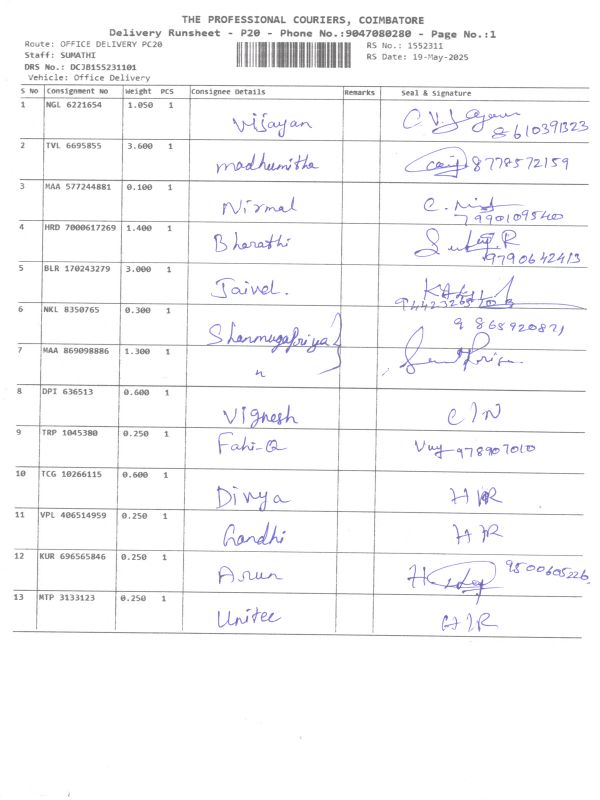 THE PROFESSIONAL COURIERS, COIMBATORE
Delivery Runsheet - P20 - Phone No.:9047080280 - Page No.:1
Route: OFFICE DELIVERY PC20 RS No.: 1552311
Staff: SUMATHI RS Date: 19-May-2025
DRS No.: DCJB155231101
Vehicle: Office Delivery
S No Consignment No Weight PCS Consignee Details Remarks Seal & Signature
1 NGL 6221654 1.050 1 Vijayan 8610391323
2 TVL 6695855 3.600 1 Madhumitha 8778572159
3 MAA 577244881 0.100 1 Nirmal 7990109540
4 HRD 7000617269 1.400 1 Bharathi 9790642413
5 BLR 170243279 3.000 1 Jaivel.
6 NKL 8350765 0.300 1 Shanmugapriya 9865920871
7 MAA 869098886 1.300 1 "
8 DPI 636513 0.600 1 Vignesh
9 TRP 1045380 0.250 1 978907010
10 TCG 10266115 0.600 1 Divya
11 VPL 406514959 0.250 1 Gandhi
12 KUR 696565846 0.250 1 Arun 9500605226
13 MTP 3133123 0.250 1 Unitec